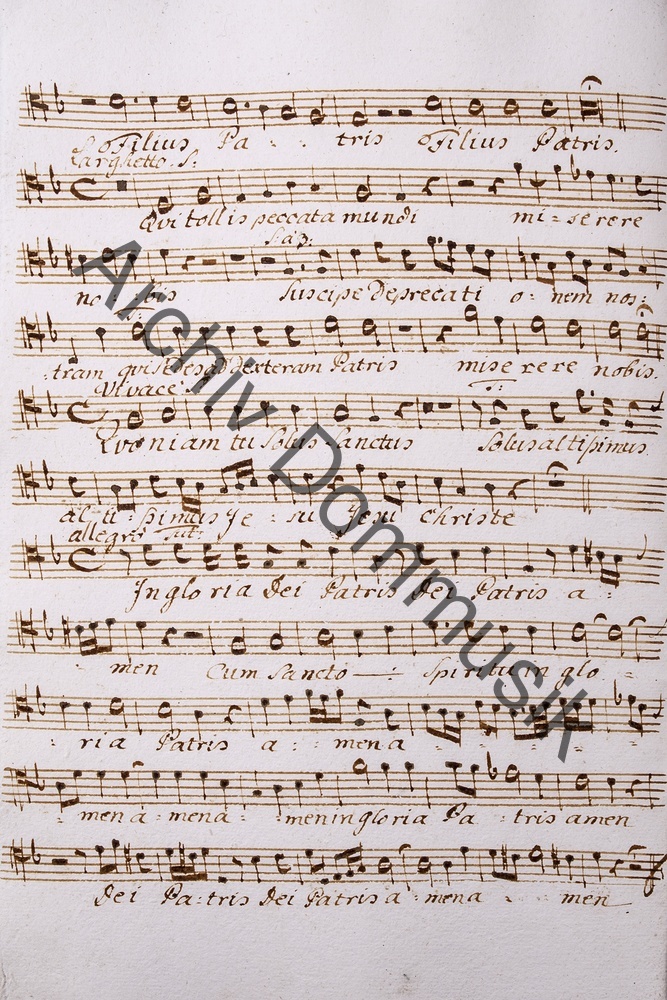 S: o Filius Pa - - tris o Filius Patris.
Larghetto. S:
Qui tollis peccata mundi mi = serere
S a 3:
no - bis Suscipe Deprecati o = nem nos =
S:
- tram qui sedes ad dexteram Patris miserere nobis.
Vivace S:
Quoniam tu Solus Sanctus Solus altissimus
al ti - ssimus Je - su Jesu Christe
allegro tut:
In gloria Dei Patris Dei Patris a =
- - men Cum Sancto — Spiritu in glo =
- ria Patris a - men a - - - -
- men a - men a - men in gloria Pa - tris amen
Dei Pa - tris Dei Patris a - men a - - men
Archiv Dommusik